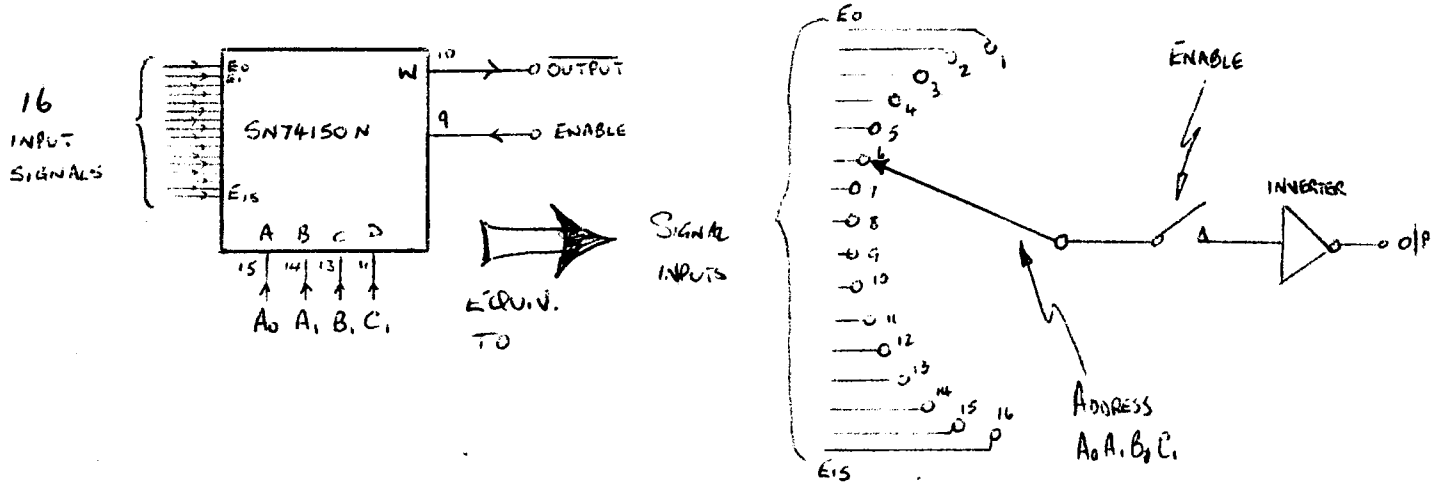 16
INPUT
SIGNALS
E0
E1
E15
SN74150N
W
10
OUTPUT
9
ENABLE
A B C D
15 14 13 11
A0 A1 B1 C1
EQUIV.
TO
SIGNAL
INPUTS
E0
1
2
3
4
5
6
7
8
9
10
11
12
13
14
15
16
E15
ENABLE
INVERTER
O/P
ADDRESS
A0 A1 B1 C1